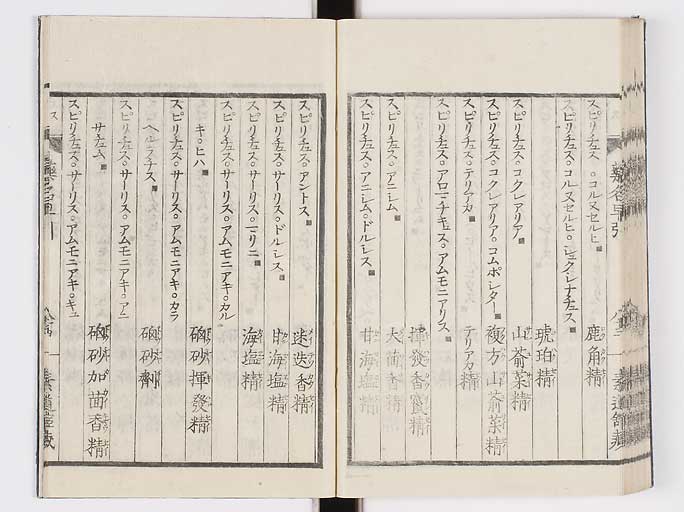 スピリチュス。コルヌセルヒ 鹿角精
スピリチュス。コルヌセルヒ。シュクシナチュス
琥珀精
スピリチュス。コクレアリア 山萮菜精
スピリチュス。コクレアリア。コムポシタ 複方山萮菜精
スピリチュス。テリアカ テリアカ精
スピリチュス。アロマチキュス。アムモニアリス
揮發香竄精
スピリチュス。アニシム 大茴香精
スピリチュス。アニシム。ドルシス 甘海塩精
スピリチュス。アントス 迷迭香精
スピリチュス。サーリス。ドルシス 甘海塩精
スピリチュス。サーリス。マリニ 海塩精
スピリチュス。サーリス。アムモニアキ。カル
キ。ヒハ 硇砂揮發精
スピリチュス。サーリス。アムモニアキ。カラ
ヘルラナス 硇砂劑
スピリチュス。サーリス。アムモニアキ。アニ
サチュム 硇砂加茴香精
スピリチュス。サーリス。アムモニアキ。キュ
藥名早引